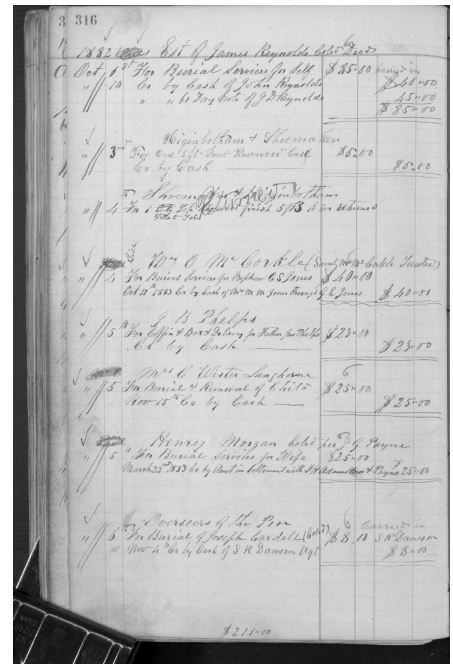 3 316
1882 Est of James Reynolds Cold Decd
Oct 1st For Burial Services for Self $85.00
" 10 Cr by Cash of John Reynolds $40.00
" " 60 Day Note of J D Reynolds 45.00
$85.00
Higinbotham & Shoemaker
" 3rd For One 5 ft Case $5.00
Cr by Cash $5.00
" 4 For 1 finish 5/63 returned
Wm O McCorkle (
" 4 For Burial Services for Nephew C S Jones $40.00
Oct 18th 1883 Cr by Cash of Mr M M Jones G E Jones $40.00
J B Phelps
" 5th For Coffin & Box & Delivery for Father Jas Phelps $23.00
Cr by Cash $23.00
Mrs C Wister Langhorne
" 5 For Burial & Removal of Child $25.00
Nov 15th Cr by Cash $25.00
Henry Morgan Cold per J G Payne
" 5 For Burial Services for Wife $25.00
March 22d 1883 Cr by Amt in Settlement with & Payne 25.00
Overseers of the Poor
" 6th For Burial of Joseph Cardell (Cold) $8.00 S R Dawson
Nov 4th Cr by Cash of S R Dawson Agt $8.00
$211.00